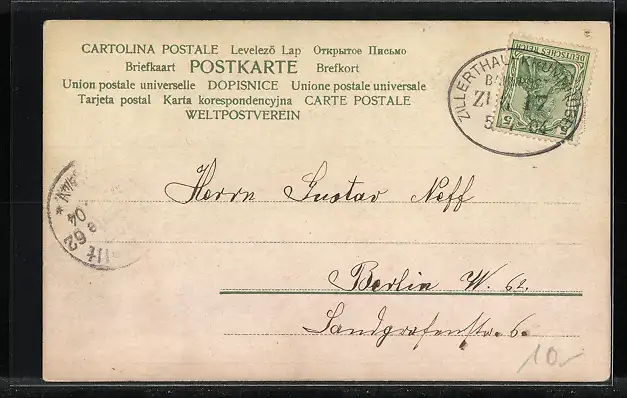 CARTOLINA POSTALE Levelező Lap Открытое Письмо
Briefkaart POSTKARTE Brefkort
Union postale universelle DOPISNICE Unione postale universale
Tarjeta postal Karta korespondencyjna CARTE POSTALE
WELTPOSTVEREIN
DEUTSCHES REICH
5
ZILLERTHAL
17
62
04
Herrn Gustav Neff
Berlin W. 62.
Landgrafenstr. 6.
10.-